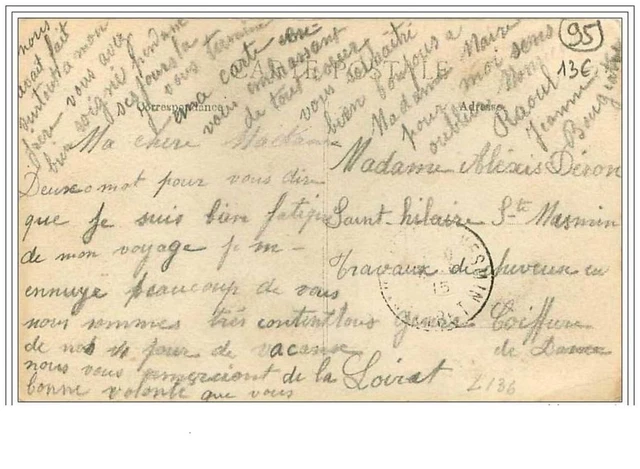 CARTE POSTALE
Correspondance
Adresse
95
13€
Ma chère Madame
Deux mot pour vous dire
que je suis bien fatigue
de mon voyage je m
ennuye beaucoup de vous
nous sommes très content tous
de nos jour de vacance
nous vous remercions de la
bonne volonté que vous
nous
avait fait
surtout a mon
frère vous avez
bien soigné pendant
ses jours la
je vous termine
ma carte en
vous embrassant
de tout coeur
vous souhaité
bien bonjour a
Madame Marie
pour moi sens
oublier Mons
Raoul
Jeanne
Madame Alexis Déron
Saint-hilaire S-te Mesmin
Travaux de cheveux en
genre Coiffure
de Dame
Loiret
MESMIN
15
2136